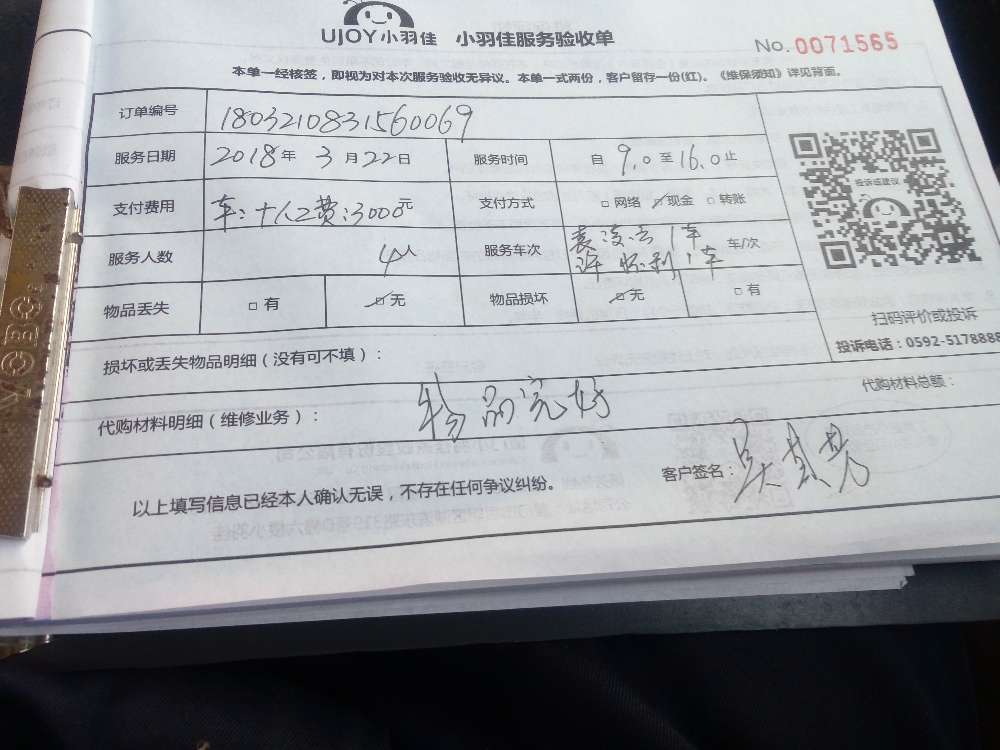 UJOY小羽佳 小羽佳服务验收单
No. 0071565
本单一经核签，即视为对本次服务验收无异议。本单一式两份，客户留存一份(红)。《维保须知》详见背面。
订单编号 1803210831560069
服务日期 2018年3月22日 服务时间 自9.0至16.0止
支付费用 车:十人工费:3000元 支付方式 □网络 ☑现金 □转账
服务人数 4人 服务车次 1车 车/次
1车
投诉或建议
物品丢失 □有 ☑无 物品损坏 ☑无 □有
扫码评价或投诉
投诉电话：0592-5178888
损坏或丢失物品明细（没有可不填）：
代购材料明细（维修业务）： 物品完好 代购材料总额：
以上填写信息已经本人确认无误，不存在任何争议纠纷。 客户签名：